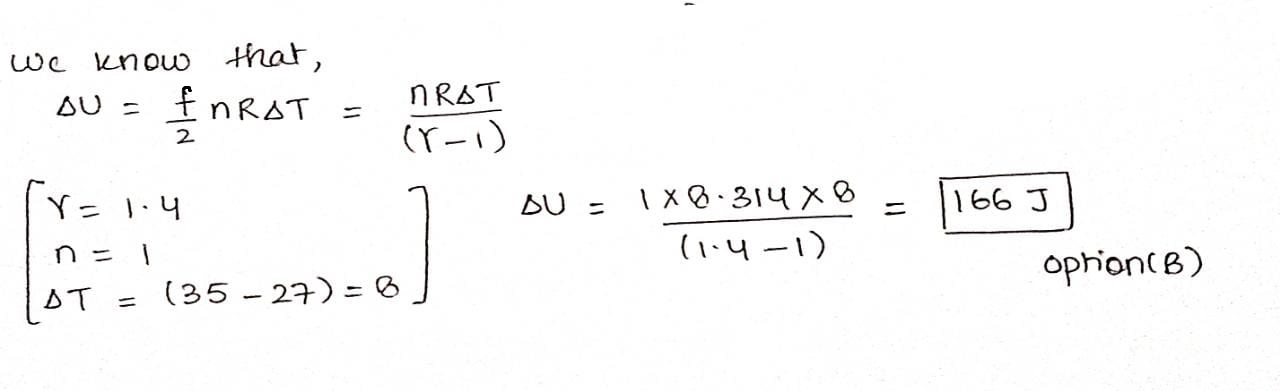 we know that,
ΔU = f/2 nRΔT = nRΔT/(γ-1)
γ = 1.4
n = 1
ΔT = (35 - 27) = 8
ΔU = 1 × 8.314 × 8/(1.4 - 1) = 166 J
option(B)